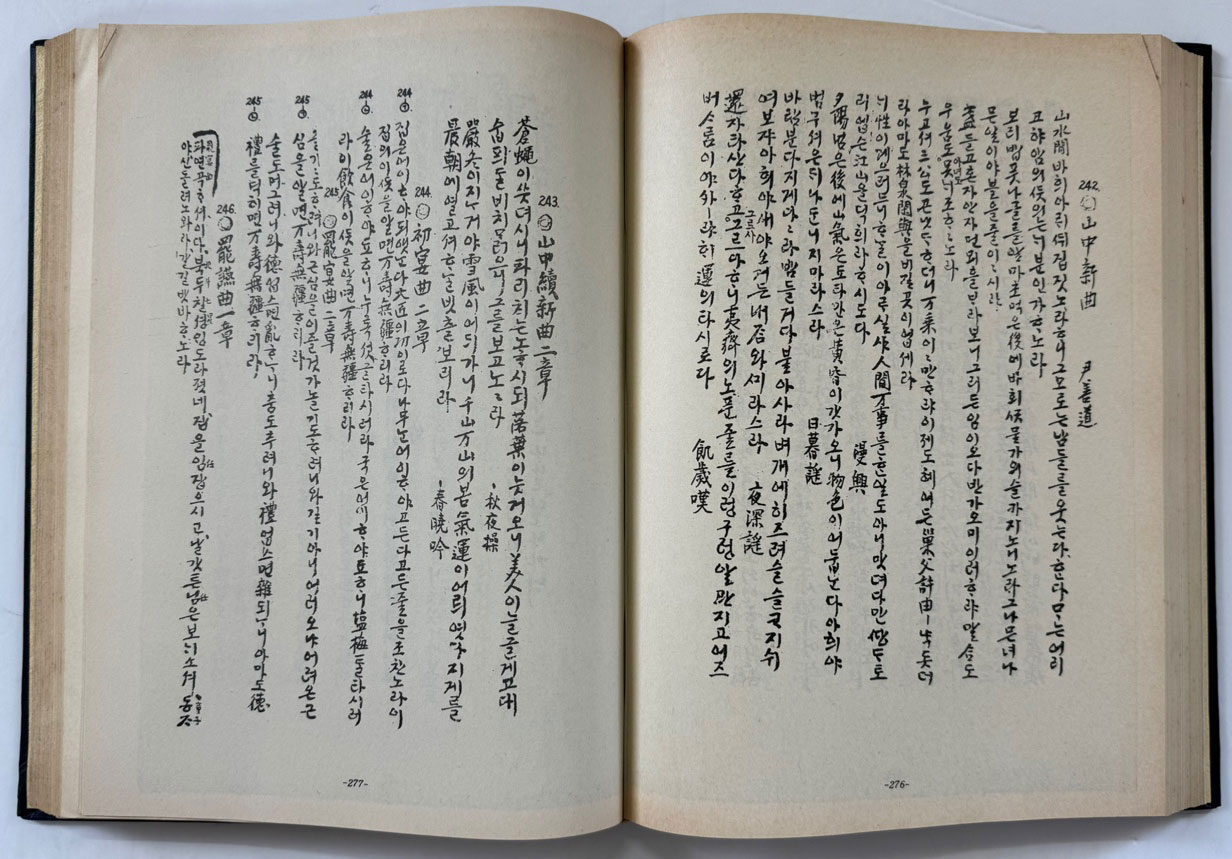 242. ○山中新曲 尹善道
山水間바희아리뛰집짓노라ᄒᆞ니그모로는남들를웃는다ᄒᆞᆫ다마는어리
고햐암의ᄯᅳᆺ의는ᄂᆡ분인가ᄒᆞ노라
보리밥풋나믈을알마초먹은後에바회ᄭᅳᆺ믈가의슬카지노니노라그나믄녀나
믄일이야불을줄이〻시랴
盞들고혼자안자먼뫼를ᄇᆞ라보니그러든임이오다반가오미이러ᄒᆞ랴말ᄉᆞᆷ도
우음도못ᄂᆡ됴하ᄒᆞ노라
누고셔三公도곤낫다ᄒᆞ더니万乘이〻만ᄒᆞ랴이제도혜여든巢父許由ㅣ냑돗더
라아마도林泉閑興을비길곳이업세라
ᄂᆡ性이게으르더니하ᄂᆞᆯ이아ᄅᆞ실샤人間万事를ᄒᆞᆫ일도아니맛뎌다만ᄃᆞ토
리업슨江山을덕희라ᄒᆞ시도다 漫興
夕陽넘은後에山氣은됴타만은黃昏이갓가오니物色이어둡ᄂᆞᆫ다아희야
범므셔은ᄃᆡ나ᄃᆞᆫ니지마라스라 日暮謠
바람분다지게다다라밤들거다불아사라벼개에히즈려슬ᄏᆞ지쉬
여보쟈아희야새야오거든내ᄌᆞᆷ와ᄭᅴ라스라 夜深謠
還자타산다ᄒᆞ고그르다ᄒᆞ니夷齊의노푼줄를이렁구러알관지고어즈
버스름이야 運의타시로다 飢歲嘆
-276-
243. ○山中續新曲二章
蒼蠅이ᄭᅳᆺ뎌시니파리치는노ᄒᆞ시되落葉이늣거오니美人이늘를게고대
숩희ᄃᆞᆯ비치ᄆᆞᆰ으니그를보고노〻라 ·秋夜操
嚴冬이지나거야雪風이어듸가니千山万山의봄氣運이어릐엿다지게를
晨朝에열고셔하ᄂᆞᆯ빗츨보리라 ·春曉吟
244. ○初宴曲二章
244 집은어이ᄒᆞ야되엿ᄂᆞᆫ다大匠의功이로다나무ᄂᆞᆫ어이ᄒᆞ야고든다고든줄을조찬노라이
집의이ᄯᅳᆺ을알면万壽無疆ᄒᆞ리라
244 술은어이ᄒᆞ야됴ᄒᆞ니누룩섯글타시러라국은어이ᄒᆞ야됴ᄒᆞ니塩梅ᄐᆞᆯ타시러
라이飮食이ᄯᅳᆺ을알면万壽無疆ᄒᆞ리라
245. ○罷宴曲二章
245 즐기기도ᄒᆞ려니와근심을이즐것가놀기도ᄒᆞ려니와길기아니어려오냐어려온근
심을알면万壽無疆ᄒᆞ리라
245 술도머그려니와德업스면亂ᄒᆞᄂᆞ니춤도추려니와禮업스면雜되ᄂᆞ니아마도德
禮를딕희면万壽無疆ᄒᆞ리라
246. ○罷讌曲一章
파연곡ᄒᆞ사이다北두칠셩잉도라졋네잡을임잡으시고날갓튼님은보ᄂᆡ소셔동ᄌᆞ
야신돌려노와라갈길밧바ᄒᆞ노라
-277-